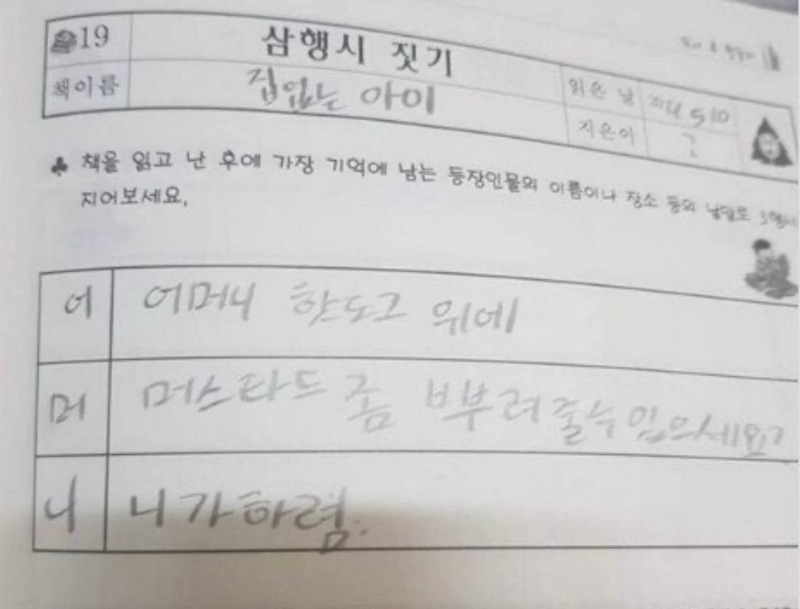 19 삼행시 짓기
책이름 집없는 아이 읽은 날 2024 5 10
지은이 ?
책을 읽고 난 후에 가장 기억에 남는 등장인물의 이름이나 장소 등의 낱말로 3행시
지어보세요.
어 어머니 핫도그 위에
머 머스타드 좀 ㅂ부려줄수 있으세요?
니 니가하렴.